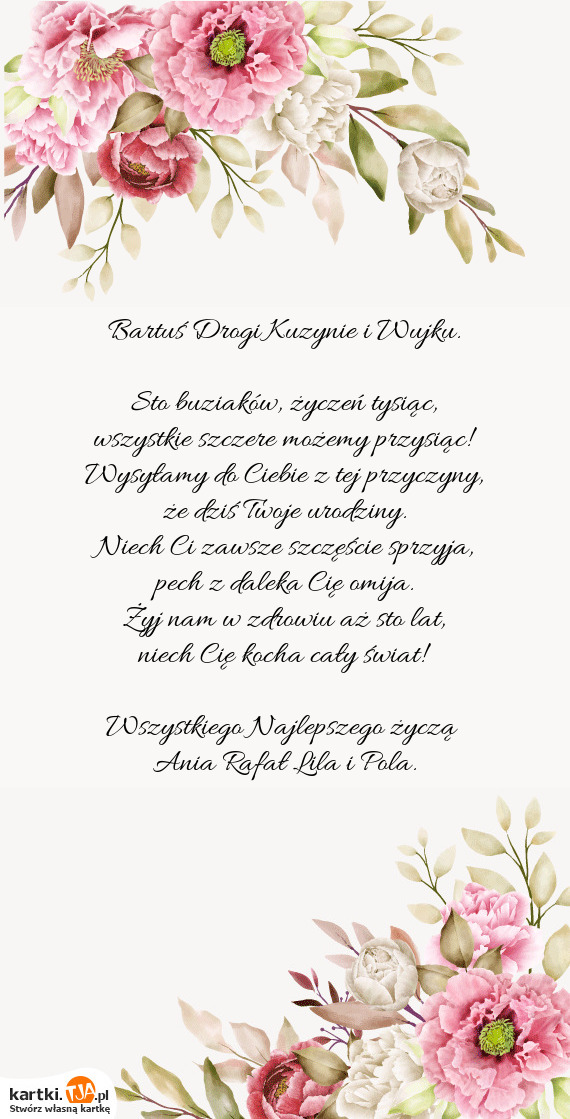 Bartuś Drogi Kuzynie i Wujku.
Sto buziaków, życzeń tysiąc,
wszystkie szczere możemy przysiąc!
Wysyłamy do Ciebie z tej przyczyny,
że dziś Twoje urodziny.
Niech Ci zawsze szczęście sprzyja,
pech z daleka Cię omija.
Żyj nam w zdrowiu aż sto lat,
niech Cię kocha cały świat!
Wszystkiego Najlepszego życzą
Ania Rafał Lila i Pola.
kartki.TJA.pl
Stwórz własną kartkę